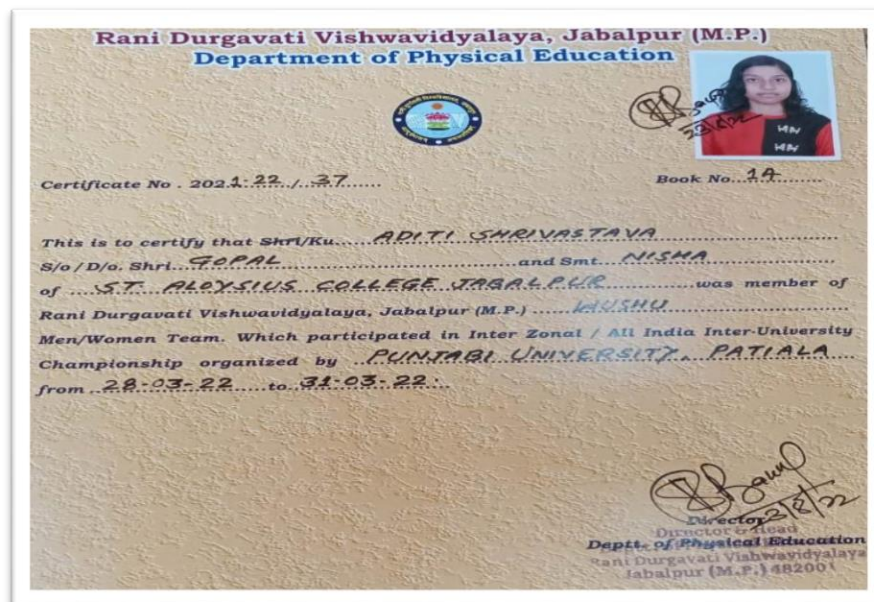 Rani Durgavati Vishwavidyalaya, Jabalpur (M.P.)
Department of Physical Education
23/8/22
Certificate No . 2021-22 / 37
Book No. 1A
This is to certify that Shri/Ku. ADITI SHRIVASTAVA
S/o / D/o. Shri. GOPAL and Smt. NISHA
of ST. ALOYSIUS COLLEGE JABALPUR was member of
Rani Durgavati Vishwavidyalaya, Jabalpur (M.P.) WUSHU
Men/Women Team. Which participated in Inter Zonal / All India Inter-University
Championship organized by PUNJABI UNIVERSITY, PATIALA
from 28-03-22 to 31-03-22.
23/8/22
Director
Director & Head
Deptt. of Physical Education
Rani Durgavati Vishwavidyalaya
Jabalpur (M.P.) 48200